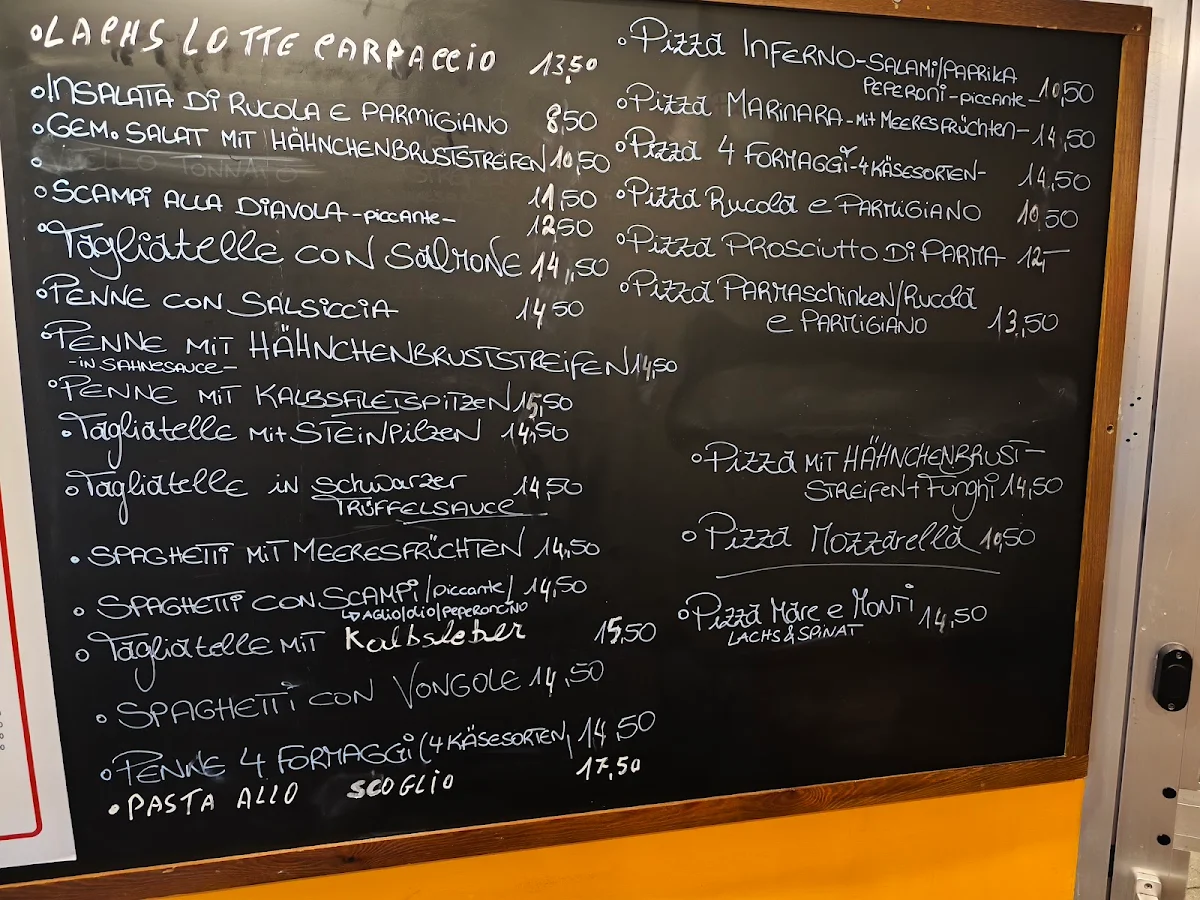 LACHS LOTTE CARPACCIO 13,50
INSALATA DI RUCOLA E PARMIGIANO 8,50
GEM. SALAT MIT HÄHNCHENBRUSTSTREIFEN 10,50
VITELLO TONNATO 11,50
SCAMPI ALLA DIAVOLA -piccante- 12,50
Tagliatelle con Salmone 14,50
PENNE CON SALSICCIA 14,50
PENNE MIT HÄHNCHENBRUSTSTREIFEN 14,50
-IN SAHNESAUCE-
PENNE MIT KALBSFILETSPITZEN 15,50
Tagliatelle mit STEINPILZEN 14,50
Tagliatelle in schwarzer 14,50
TRÜFFELSAUCE
SPAGHETTI MIT MEERESFRÜCHTEN 14,50
SPAGHETTI CON SCAMPI /piccante/ 14,50
AGLIO/OLIO/PEPERONCINO
Tagliatelle MIT Kalbsleber 15,50
SPAGHETTI CON VONGOLE 14,50
PENNE 4 FORMAGGI (4 KÄSESORTEN) 14,50
PASTA ALLO SCOGLIO 17,50
Pizza INFERNO-SALAMI/PAPRIKA
PEPERONI-piccante- 10,50
Pizza MARINARA-mit MEERESFRÜCHTEN- 14,50
Pizza 4 FORMAGGI-4 KÄSESORTEN- 14,50
Pizza Rucola e PARMIGIANO 10,50
Pizza PROSCIUTTO DI PARMA 12,-
Pizza PARMASchinken/Rucola
e PARMIGIANO 13,50
Pizza MIT HÄHNCHENBRUST-
STREIFEN + Funghi 14,50
Pizza Mozzarella 10,50
Pizza Mare e Monti 14,50
LACHS & SPINAT